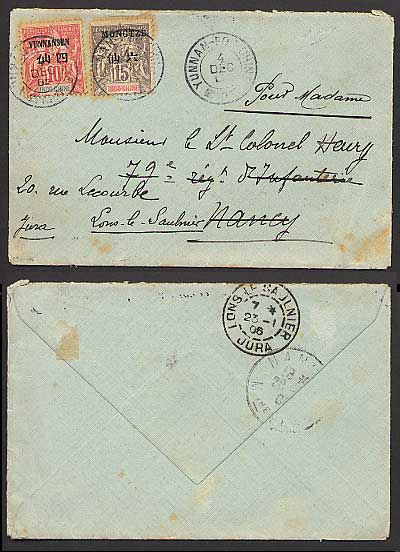 YUNNANSEN
10
INDO-CHINE
MONGTZE
15
INDO-CHINE
4
DEC
Pour Madame
Monsieur le Lt Colonel Henry
79e régt d'Infanterie
20. rue Lecourbe
Jura Lons-le-Saulnier Nancy
LONS-LE-SAULNIER
7 *
23 -1
06
JURA